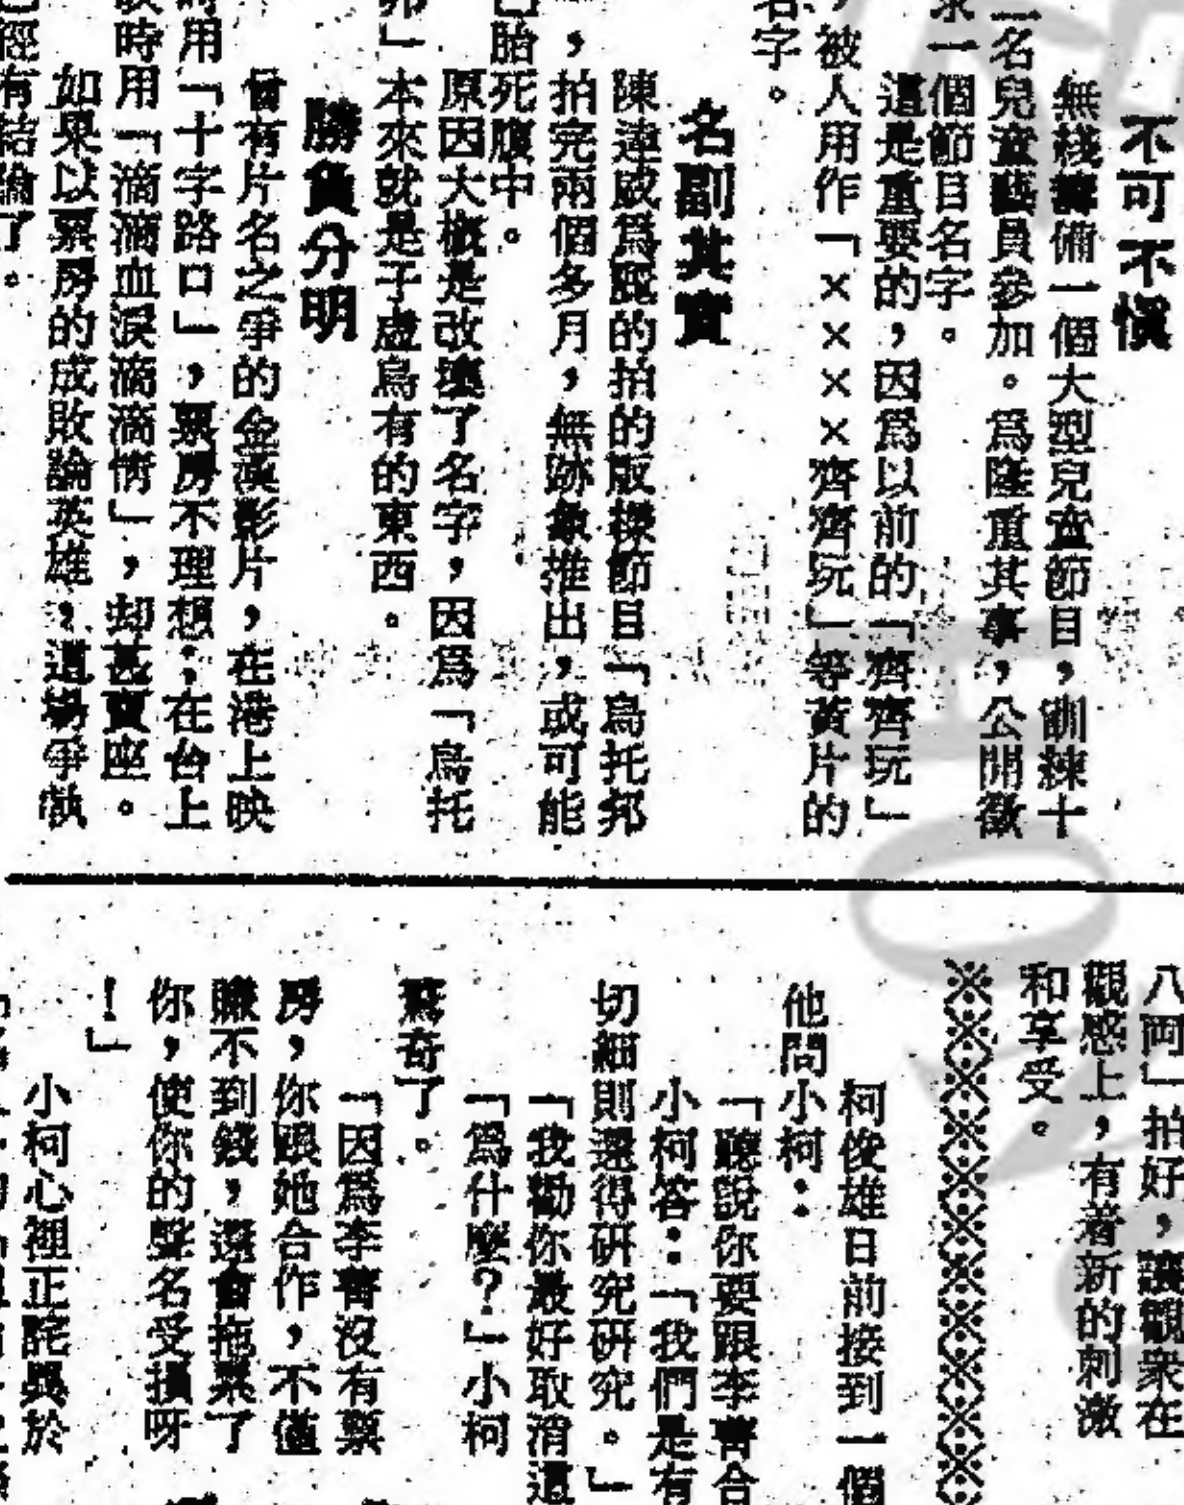 不可不慎
無綫籌備一個大型兒童節目,訓練十
二名兒童藝員參加。爲隆重其事,公開徵
求一個節目名字。
這是重要的,因爲以前的「齊齊玩」
,被人用作「××××齊齊玩」等黃片的
名字。
名副其實
陳達威爲麗的拍的版權節目「烏托邦
,拍完兩個多月,無跡象推出,或可能
胎死腹中。
原因大概是改壞了名字,因爲「烏托
邦」本來就是子虛烏有的東西。
勝負分明
曾有片名之爭的金漢影片,在港上映
時用「十字路口」,票房不理想;在台上
映時用「滴滴血淚滴滴情」,却甚賣座。
如果以票房的成敗論英雄,這場爭執
已經有結論了。
八両」拍好,讓觀衆在
觀感上,有着新的刺激
和享受。
※※※※※※※※※※※
柯俊雄日前接到一個
他問小柯:
「聽說你要跟李菁合
小柯答:「我們是有
切細則還得研究研究。」
「我勸你最好取消這
「爲什麼?」小柯
驚奇了。
「因爲李菁沒有票
房,你跟她合作,不僅
賺不到錢,還會拖累了
你,使你的聲名受損呀
!」
小柯心裡正詫異於